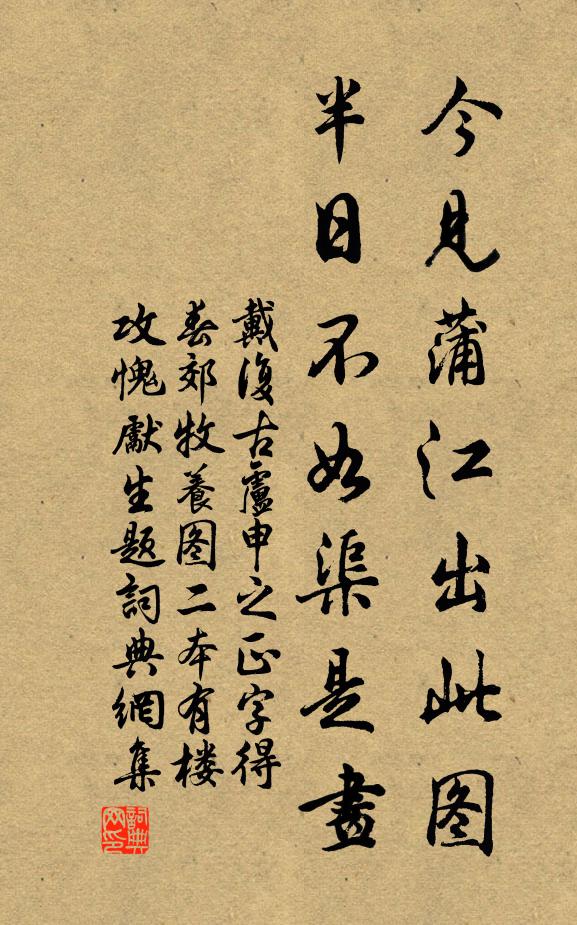 今见蒲江出此图
半日不如渠是畫
戴復古盧申之正字得
春郊牧養图二本有楼
攻愧獻生题詞典網集
詞典网印